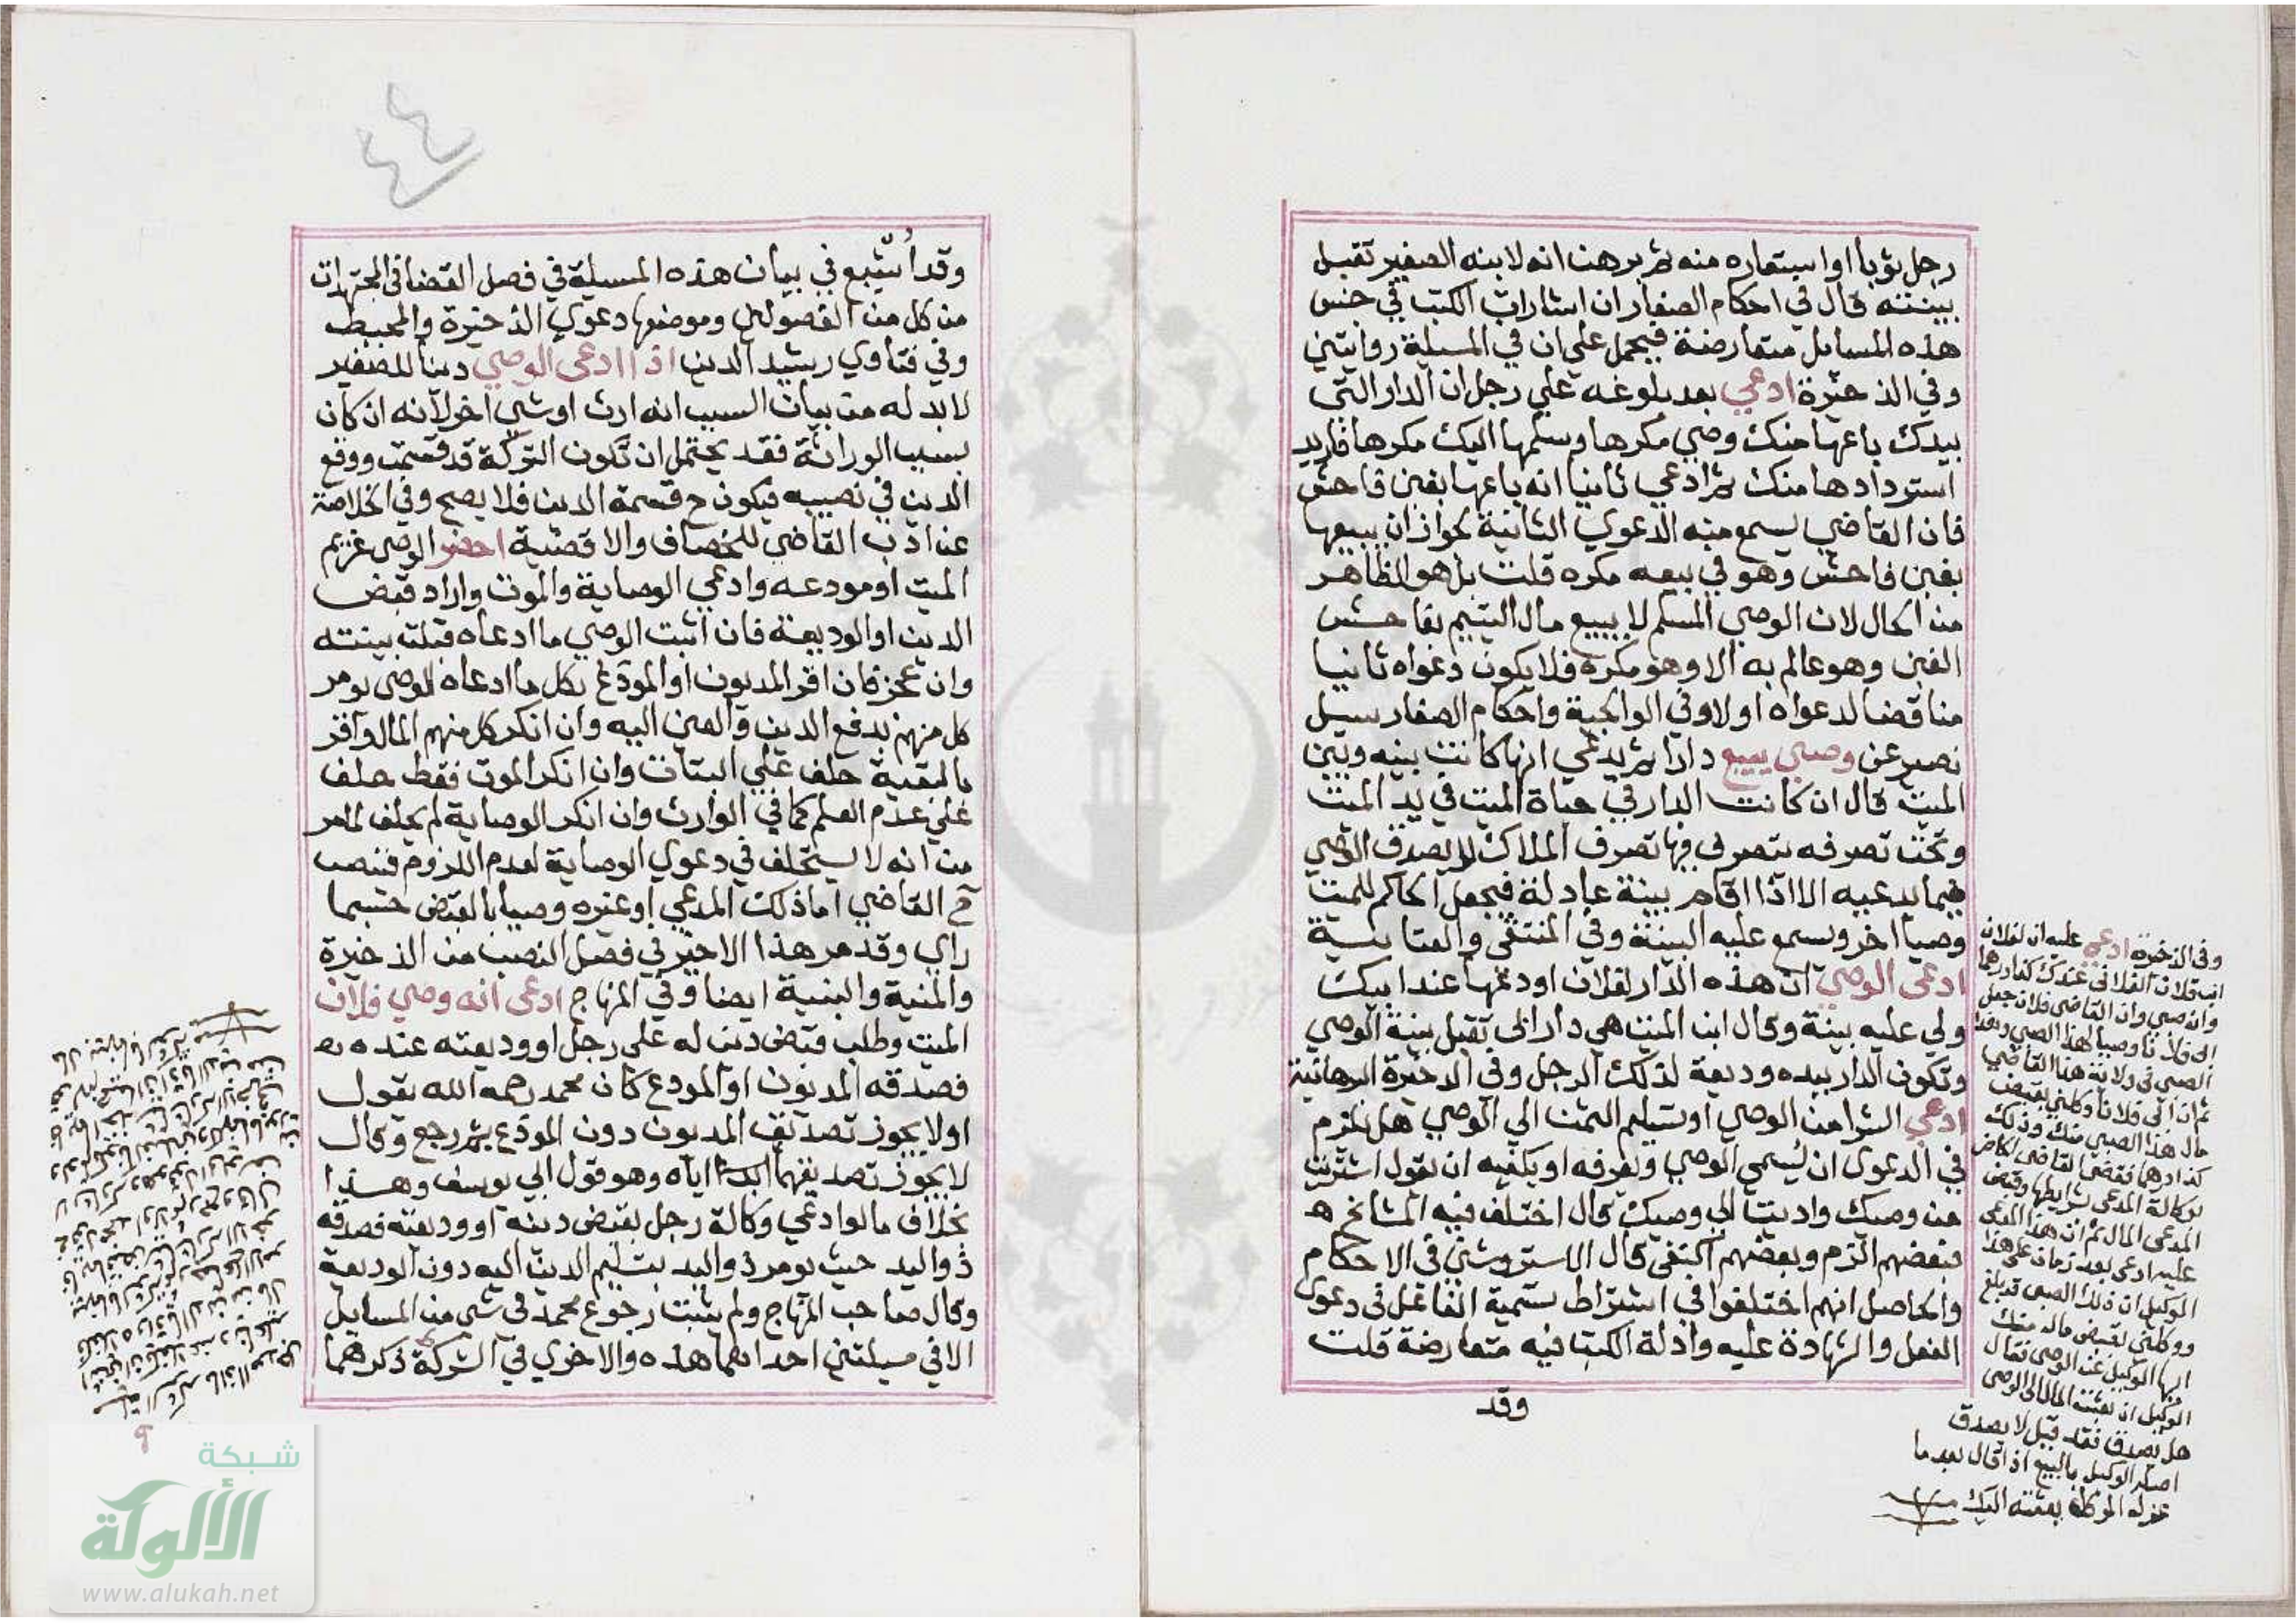 رجل ثوبا او استعاره منه ثم برهن انه لابنه الصغير تقبل
بينته قال في احكام الصغار ان اشارات الكتب في جنس
هذه المسايل متعارضة فيحمل علي ان في المسيلة روايتين
وفي الذخيرة ادعي بعد بلوغه علي رجل ان الدار التي
بيدك باعها منك وصي مكرها وسلمها اليك مكرها فاريد
استردادها منك ثم ادعي ثانيا انه باعها بغبن فاحش
فان القاضي يسمع منه الدعوي الثانية لجواز ان يبيعها
بغبن فاحش وهو في بيعه مكره قلت بل هو الظاهر
من الحال لان الوصي المسلم لا يبيع مال اليتيم بفاحش
الغبن وهو عالم به الا وهو مكره فلا يكون دعواه ثانيا
مناقضا لدعواه اولا وفي الوالجية واحكام الصغار سيل
نصير عن وصي يبيع دارا ثم يدعي انها كانت بينه وبين
الميت قال ان كانت الدار في حياة الميت في يد الميت
وتحت تصرفه يتصرف فيها تصرف الملاك لا يصدق الوصي
فيما يدعيه الا اذا اقام بينة عادلة فيجعل الحاكم للميت
وصيا اخر ويسمع عليه البينة وفي المنتقي والعتابية
ادعى الوصي ان هذه الدار لفلان اودعها عند ابيك
ولي عليه بينة وقال ابن الميت هي دار ابي تقبل بينة الوصي
وتكون الدار بيده وديعة لذلك الرجل وفي الذخيرة البرهانية
ادعي الشرا من الوصي او تسليم الثمن الي الوصي هل يلزم
في الدعوى ان يسمي الوصي ويعرفه او يكفيه ان يقول اشتريت
من وصيك واديت الي وصيك قال اختلف فيه المشايخ
فبعضهم الزم وبعضهم اكتفى قال الاستروشني في الاحكام
والحاصل انهم اختلفوا في اشتراط تسمية الفاعل في دعوى
الفعل والشهادة عليه وادلة الكتب فيه متعارضة قلت
وقد
وفي الذخيرة ادعى عليه ان لفلان
ابن فلان الفلاني عندك كذا درهما
وانه صبي وان القاضي فلان جعل
ابي فلانا وصيا لهذا الصبي وهذا
الصبي في ولاية هذا القاضي
ثم ان ابي فلانا وكلني بقبض
مال هذا الصبي منك وذلك
كذا درهما فقضى القاضي
بوكالة المدعى بشرايطها وقبض
المدعى المال ثم ان هذا المدعى
عليه ادعى بعد زمان على هذا
الوكيل ان ذلك الصبي قد بلغ
ووكلني لقبض ماله منك
ايها الوكيل عن الوصي فقال
الوكيل اني بعثت المال الى الوصي
هل يصدق فقد قيل لا يصدق
اصله الوكيل بالبيع اذا قال بعد ما
عزله الموكل بعته اليك
٤٤
وقد اُشبع في بيان هذه المسيلة في فصل القضا في المجتهدات
من كل من الفصولين وموضعها دعوي الذخيرة والمحيط
وفي فتاوي رشيد الدين اذا ادعى الوصي دينا للصغير
لا بد له من بيان السبب انه ارث او شي اخر لانه ان كان
بسبب الوراثة فقد يحتمل ان تكون التركة قد قسمت ووقع
الدين في نصيبه فيكون ح قسمة الدين فلا يصح وفي الخلاصة
عن ادب القاضي للخصاف والاقضية احضر الوصي غريم
الميت او مودعه وادعي الوصاية والموت واراد قبض
الدين او الوديعة فان اثبت الوصي ما ادعاه قبلت بينته
وان عجز فان اقر المديون او المودع بكل ما ادعاه الوصي يومر
كل منهم بدفع الدين والعين اليه وان انكر كل منهم المال واقر
بالبقية حلف علي البتات وان انكر الموت فقط حلف
علي عدم العلم كما في الوارث وان انكر الوصاية لم يحلف لما مر
من انه لا يستحلف في دعوي الوصاية لعدم اللزوم فينصب
ح القاضي اما ذلك المدعي او غيره وصيا بالقبض حسبما
راي وقد مر هذا الاخير في فصل النصب من الذخيرة
والمنية والبنية ايضا وفي المنهاج ادعى انه وصي فلان
الميت وطلب قبض دين له على رجل او وديعته عنده
فصدقه المديون او المودع كان محمد رحمه الله يقول
اولا يجوز تصديق المديون دون المودع ثم رجع وقال
لا يجوز تصديقهما اياه وهو قول ابي يوسف وهذا
بخلاف ما لو ادعي وكالة رجل بقبض دينه او وديعته فصدقه
ذو اليد حيث يومر ذو اليد بتسليم الدين اليه دون الوديعة
وقال صاحب المنهاج ولم يثبت رجوع محمد في شي من المسايل
الا في مسيلتين احداهما هذه والاخري في الشركة ذكرهما
شبكة
الألوكة
www.alukah.net